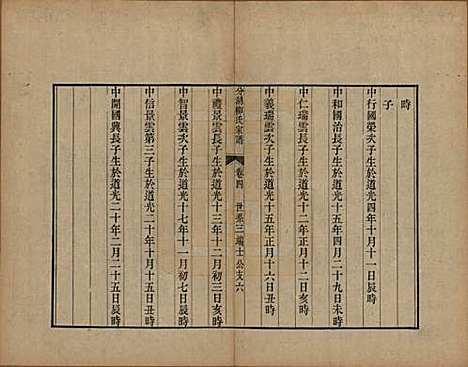 時
子
中行國榮次子生於道光四年十月十一日辰時
中和國治長子生於道光十五年四月二十九日未時
中仁瑞雲長子生於道光十二年正月十二日亥時
中義瑞雲次子生於道光十五年正月十六日丑時
分湖柳氏家譜 卷四 世系三 瑞士公支六
中禮景雲長子生於道光十三年十二月初三日亥時
中智景雲次子生於道光十七年十一月初七日辰時
中信景雲第三子生於道光二十年十月十五日丑時
中開國興長子生於道光二十年二月二十五日辰時